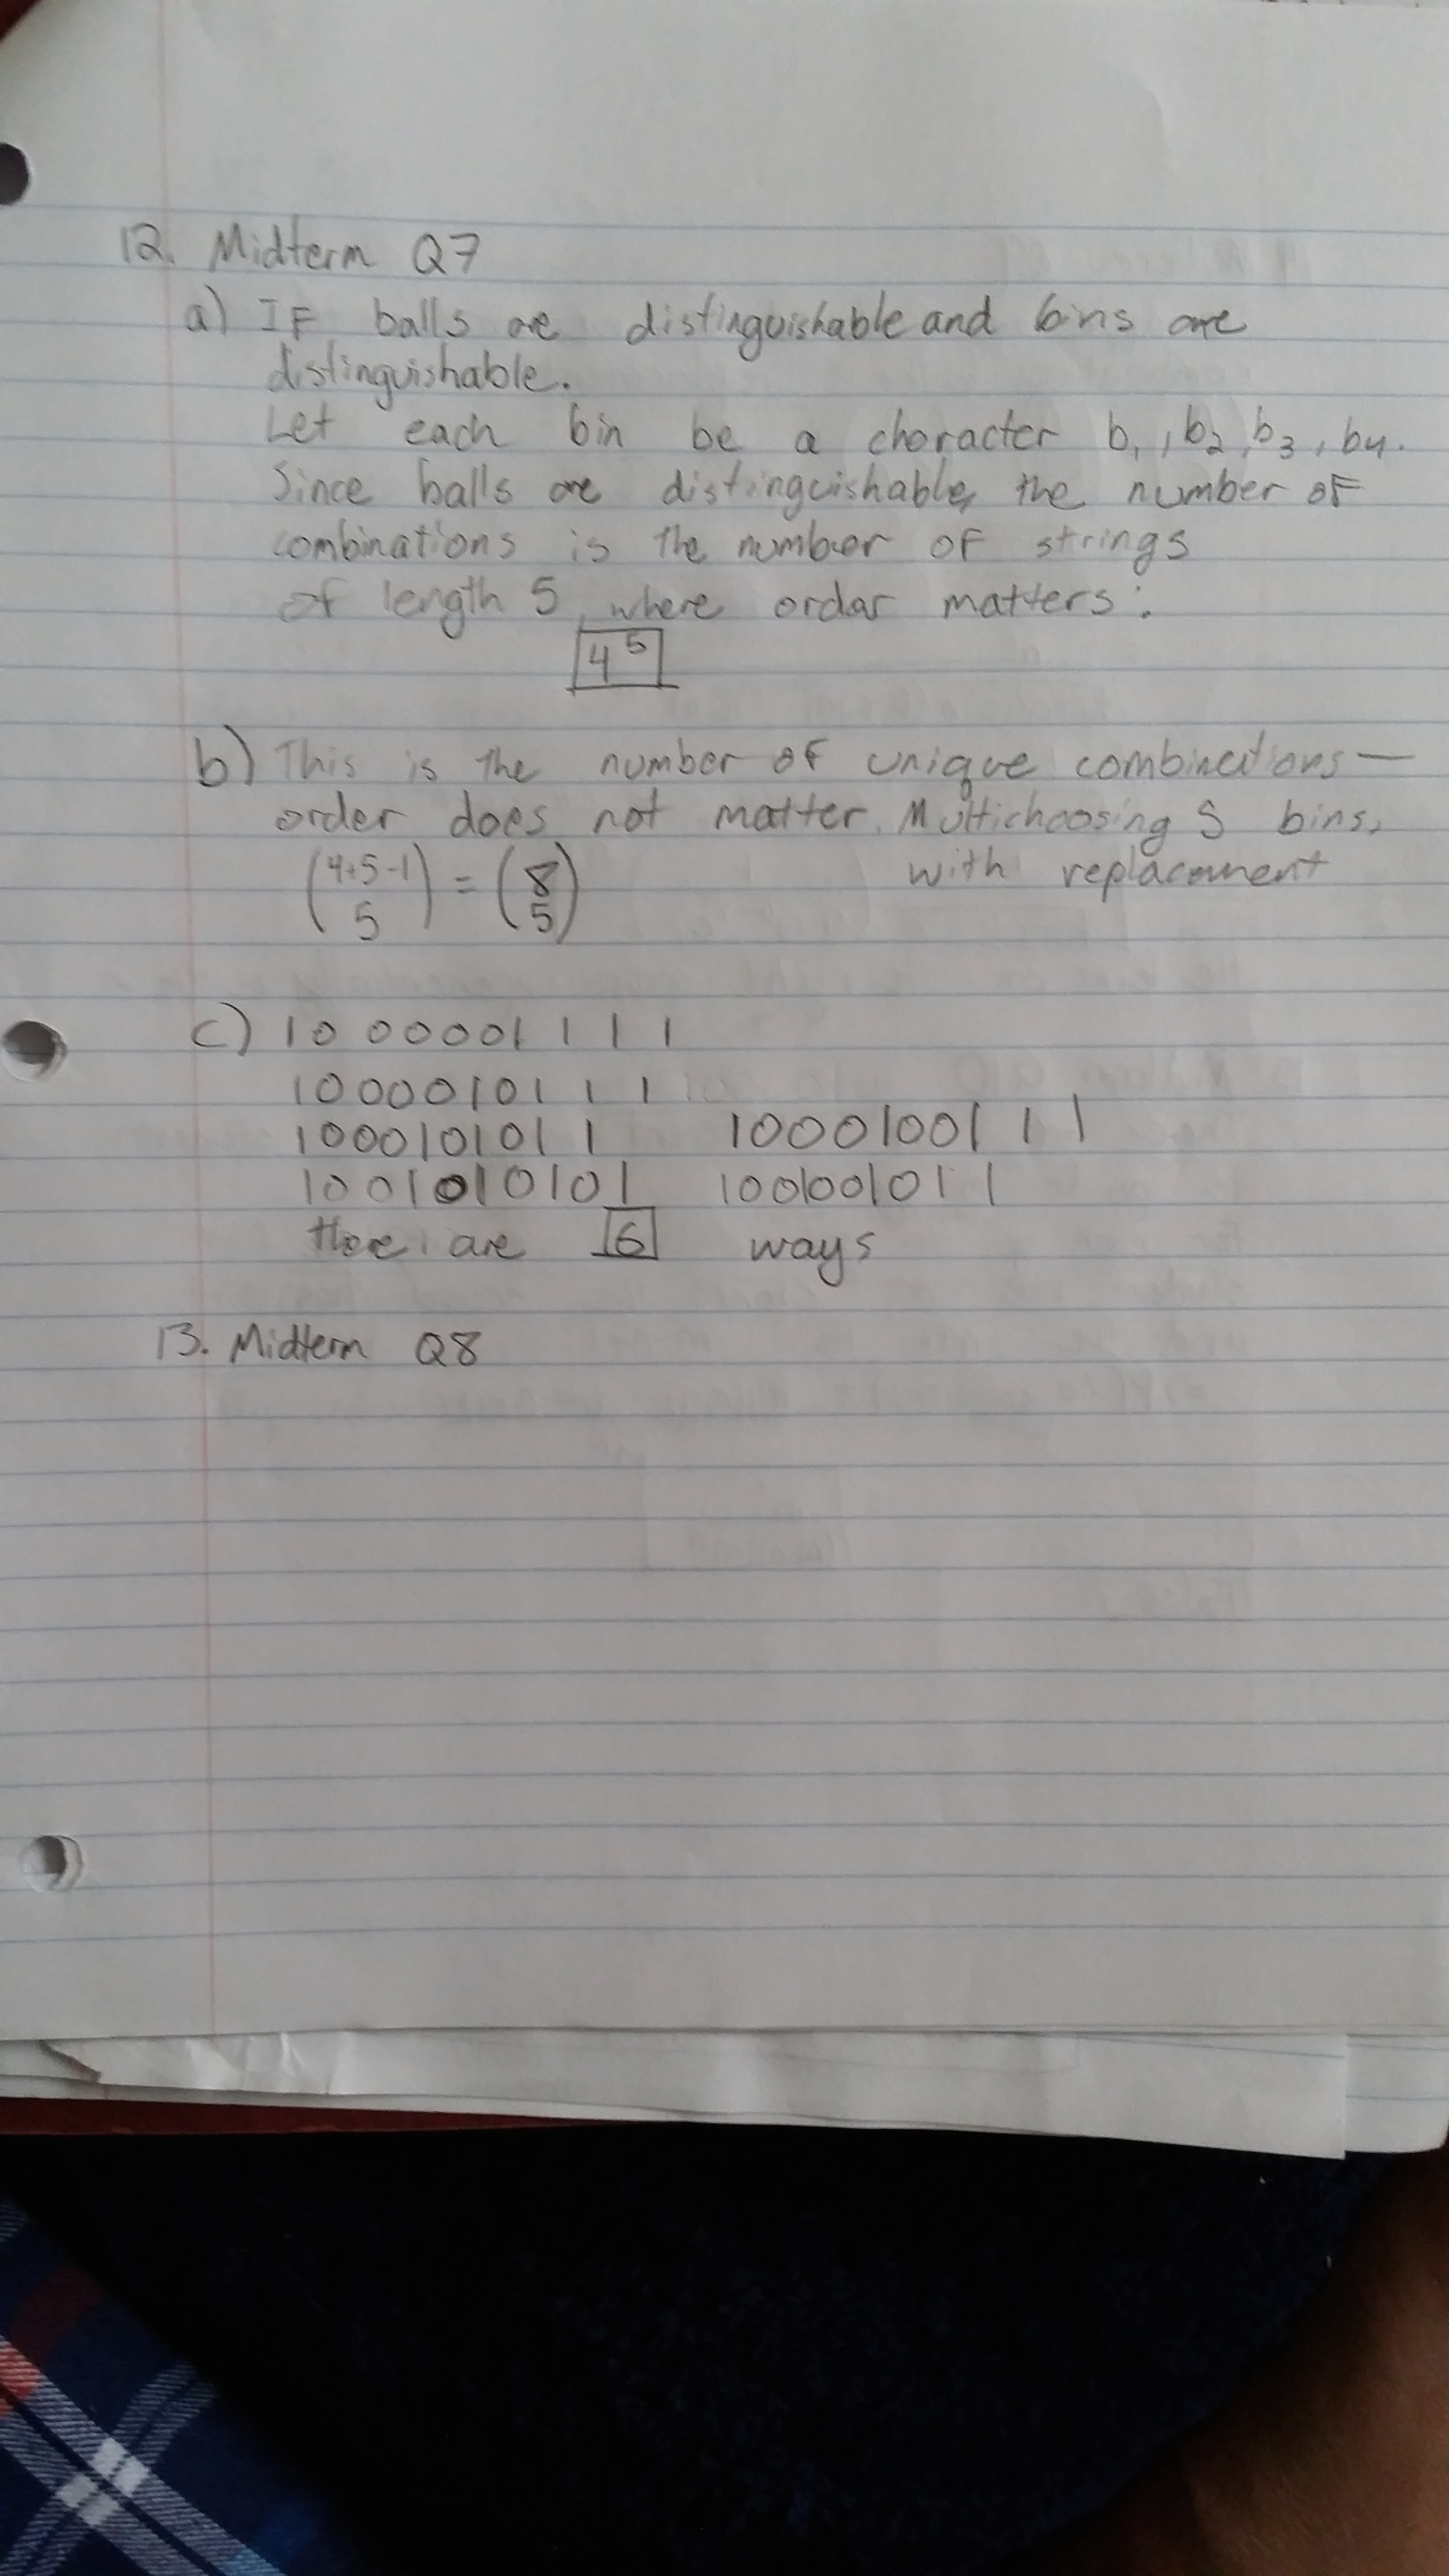 12. Midterm Q7
a) IF balls are distinguishable and bins are
distinguishable.
Let each bin be a character b1, b2, b3, b4.
Since balls are distinguishable, the number oF
combinations is the number oF strings
of length 5, where order matters:
4^5
b) This is the number oF unique combinations—
order does not matter. Multichoosing 5 bins,
with replacement
(4+5-1 5) = (8 5)
c) 1000001111
1000010111
1000101011 1000100111
1001010101 1001001011
there are 6 ways
13. Midterm Q8